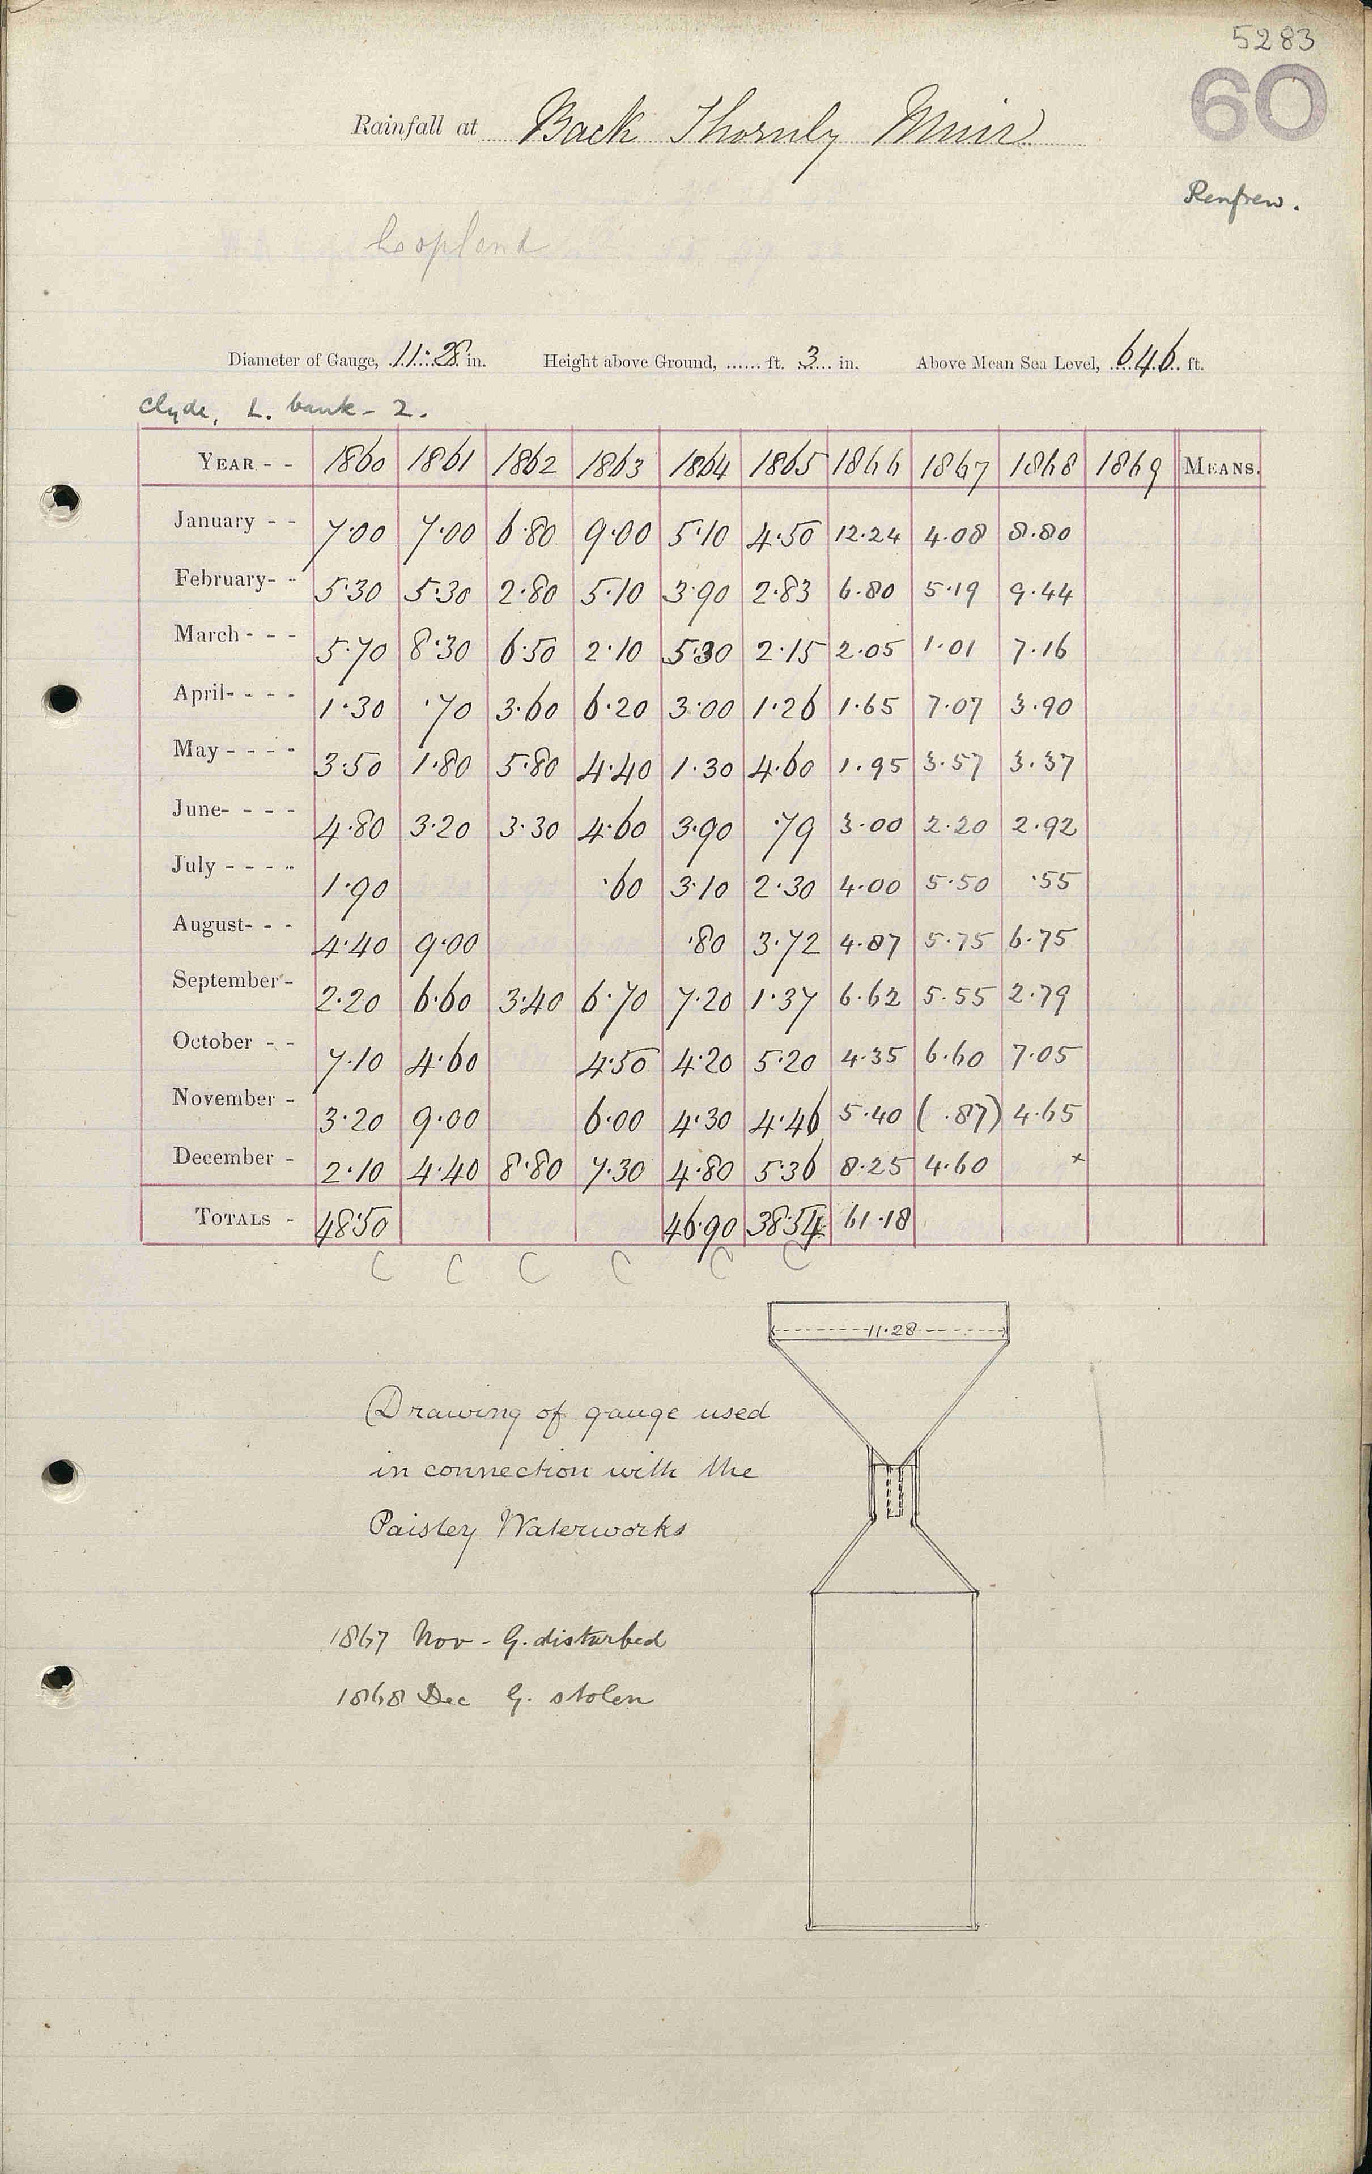 5283
60
Rainfall at Back Thornly Muir
Renfrew.
Copland
Diameter of Gauge, 11.28 in. Height above Ground, ...... ft. 3 in. Above Mean Sea Level, 646 ft.
Clyde, L. bank - 2.
YEAR - - 1860 1861 1862 1863 1864 1865 1866 1867 1868 1869 MEANS.
January - - 7.00 7.00 6.80 9.00 5.10 4.50 12.24 4.08 8.80
February - - 5.30 5.30 2.80 5.10 3.90 2.83 6.80 5.19 9.44
March - - - 5.70 8.30 6.50 2.10 5.30 2.15 2.05 1.01 7.16
April - - - - 1.30 .70 3.60 6.20 3.00 1.26 1.65 7.07 3.90
May - - - - 3.50 1.80 5.80 4.40 1.30 4.60 1.95 3.57 3.37
June - - - - 4.80 3.20 3.30 4.60 3.90 .79 3.00 2.20 2.92
July - - - - 1.90 .60 3.10 2.30 4.00 5.50 .55
August - - - 4.40 9.00 .80 3.72 4.87 5.75 6.75
September - 2.20 6.60 3.40 6.70 7.20 1.37 6.62 5.55 2.79
October - - 7.10 4.60 4.50 4.20 5.20 4.35 6.60 7.05
November - 3.20 9.00 6.00 4.30 4.46 5.40 (.87) 4.65
December - 2.10 4.40 8.80 7.30 4.80 5.36 8.25 4.60 x
TOTALS - 48.50 46.90 38.54 61.18
C C C C C C
11.28
Drawing of gauge used
in connection with the
Paisley Waterworks
1867 Nov - G. disturbed
1868 Dec G. stolen